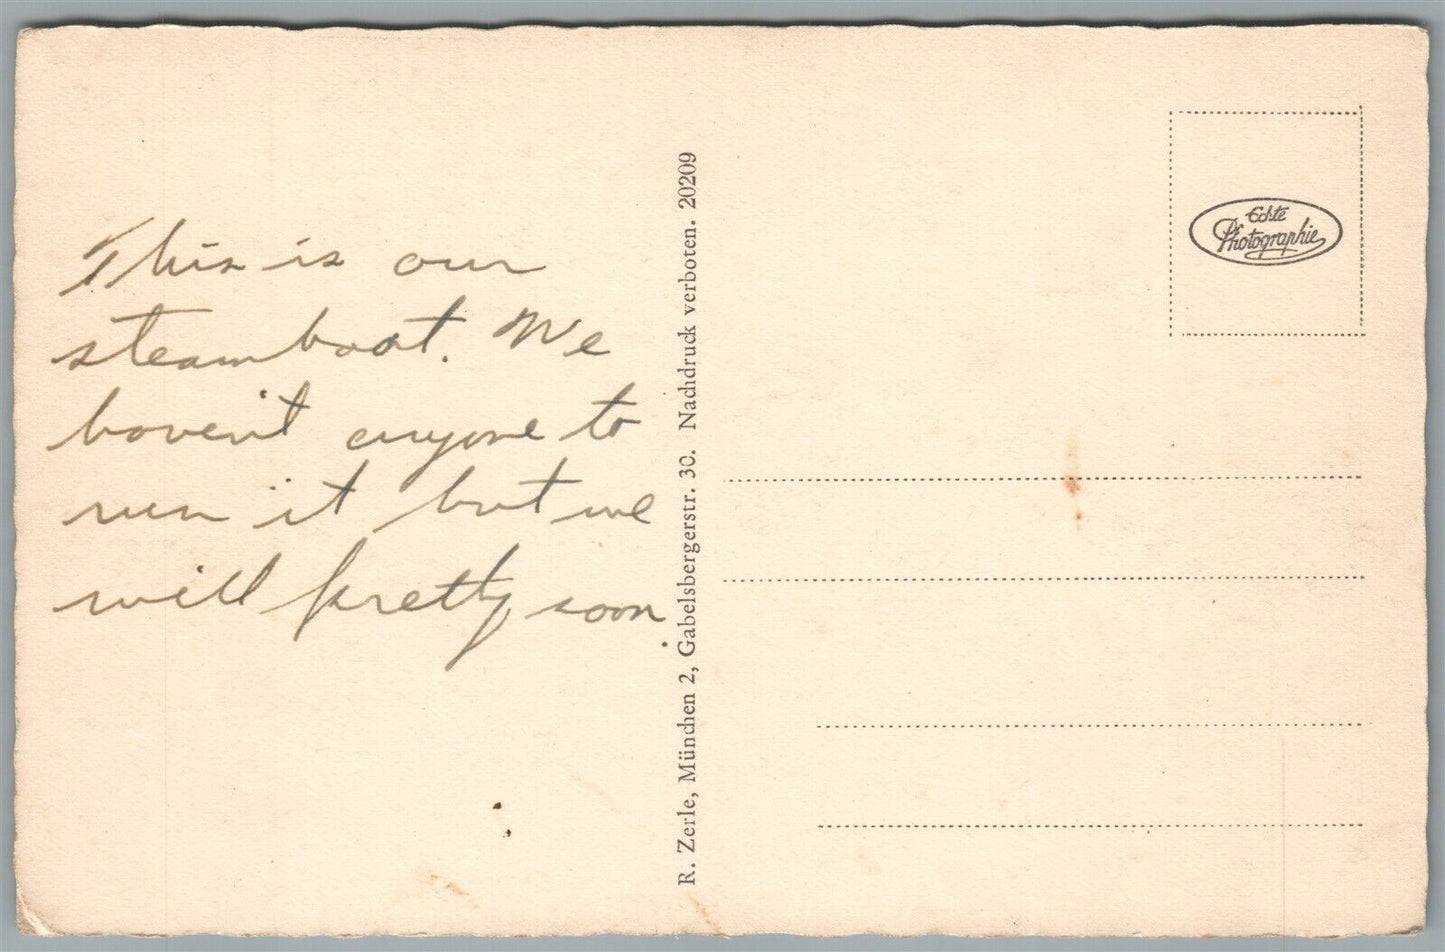 This is our
steamboat. We
haven't anyone to
run it but we
will pretty soon.
R. Zerle, München 2, Gabelsbergerstr. 30. Nachdruck verboten. 20209
Echte
Photographie